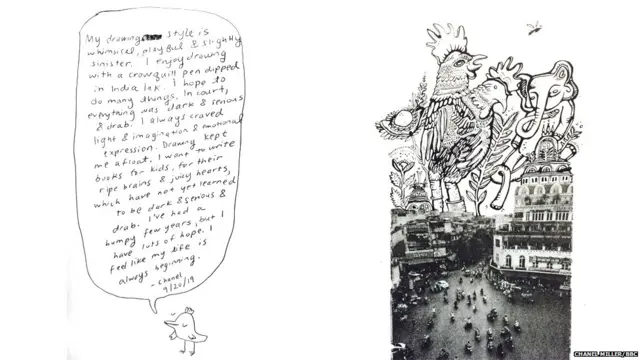 My drawing style is
whimsical, playful & slightly
sinister. I enjoy drawing
with a crowquill pen dipped
in India Ink. I hope to
do many things. In court,
everything was dark & serious
& drab. I always craved
light & imagination & emotional
expression. Drawing kept
me afloat. I want to write
books for kids, for their
ripe brains & juicy hearts,
which have not yet learned
to be dark & serious &
drab. I've had a
bumpy few years, but I
have lots of hope. I
feel like my life is
always beginning.
- Chanel
9/20/19
CHANEL MILLER/BBC